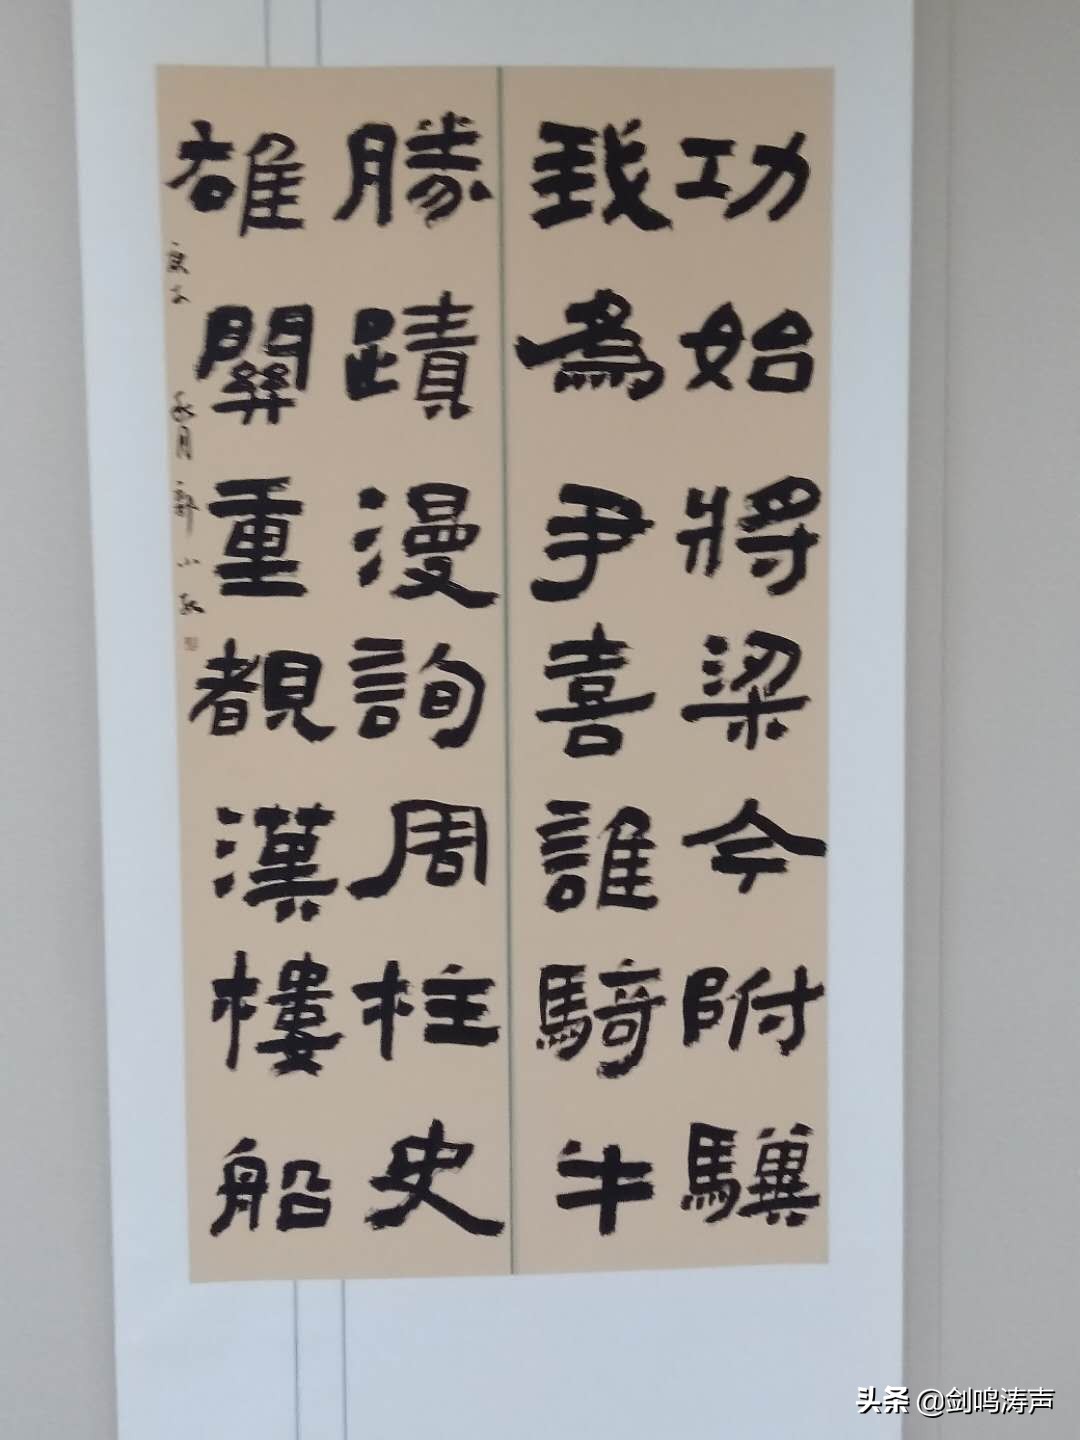 功始將梁今附驥
我為尹喜誰騎牛
勝蹟漫詢周柱史
雄關重覩漢樓船
庚子 秋月 郭小
头条 @剑鸣涛声